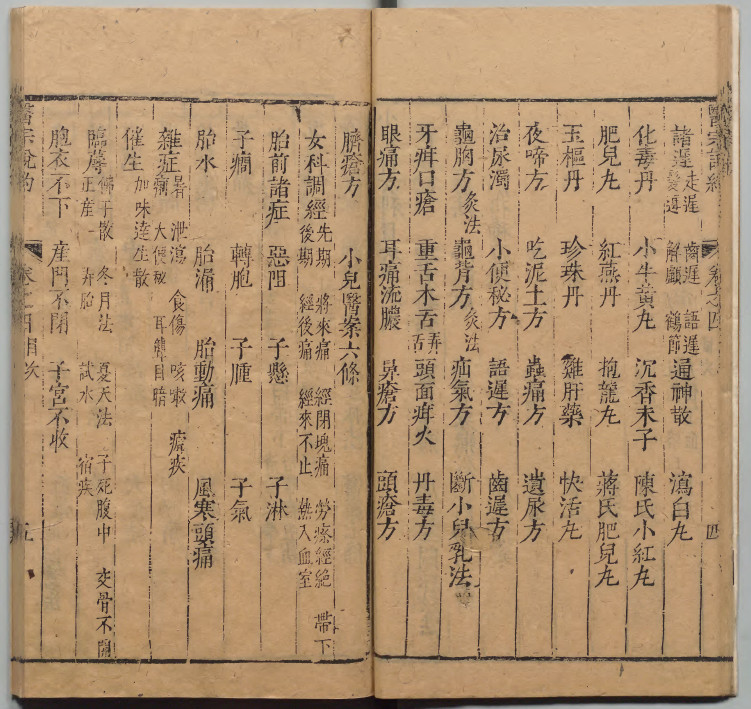 諸遲 走遲 變遲 齒遲 語遲 解顱 鶴節 通神散 瀉白丸
化毒丹 小牛黃丸 沉香末子 陳氏小紅丸
肥兒丸 紅燕丹 抱龍丸 蔣氏肥兒丸
玉樞丹 珍珠丹 雞肝藥 快活丸
夜啼方 吃泥土方 蟲痛方 遺尿方
治尿濁 小便秘方 語遲方 齒遲方
龜胸方 灸法 龜背方 灸法 疝氣方 斷小兒乳法
牙疳口瘡 重舌木舌 弄舌 頭面痺火 丹毒方
眼痛方 耳痛流膿 鼻瘡方 頭瘡方
四
臍瘡方 小兒醫案六條
女科調經 先期 後期 將來痛 經後痛 經閉塊痛 經來不止 勞瘵經絕 熱入血室 帶下
胎前諸症 惡阻 子懸 子淋
子癇 轉胞 子腫 子氣
胎水 胎漏 胎動痛 風寒頭痛
雜症 暑 痢 泄瀉 大便秘 食傷 耳聾目暗 咳嗽 瘧疾
催生 加味達生散
臨蓐 佛手散 正產 冬月法 弄胎 夏天法 試水 子死腹中 宿疾 交骨不開
胞衣不下 產門不閉 子宮不收
醫宗說約 卷之四目次 五